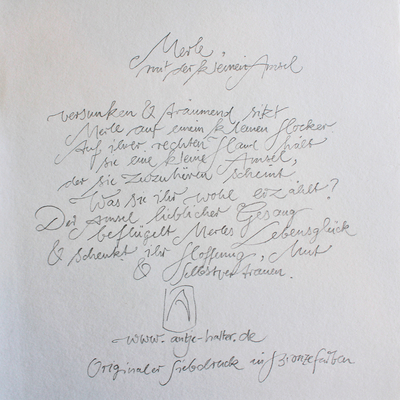 Merle,
mit der kleinen Amsel
versunken & träumend sitzt
Merle auf einem kleinen Hocker
Auf ihrer rechten Hand hält
sie eine kleine Amsel,
der sie zuzuhören scheint
Was sie ihr wohl erzählt?
Der Amsel lieblicher Gesang
beflügelt Merles Lebensglück
& schenkt ihr Hoffnung, Mut
& Selbstvertrauen.
www.antje-halter.de
Originaler Siebdruck in Bronzefarben